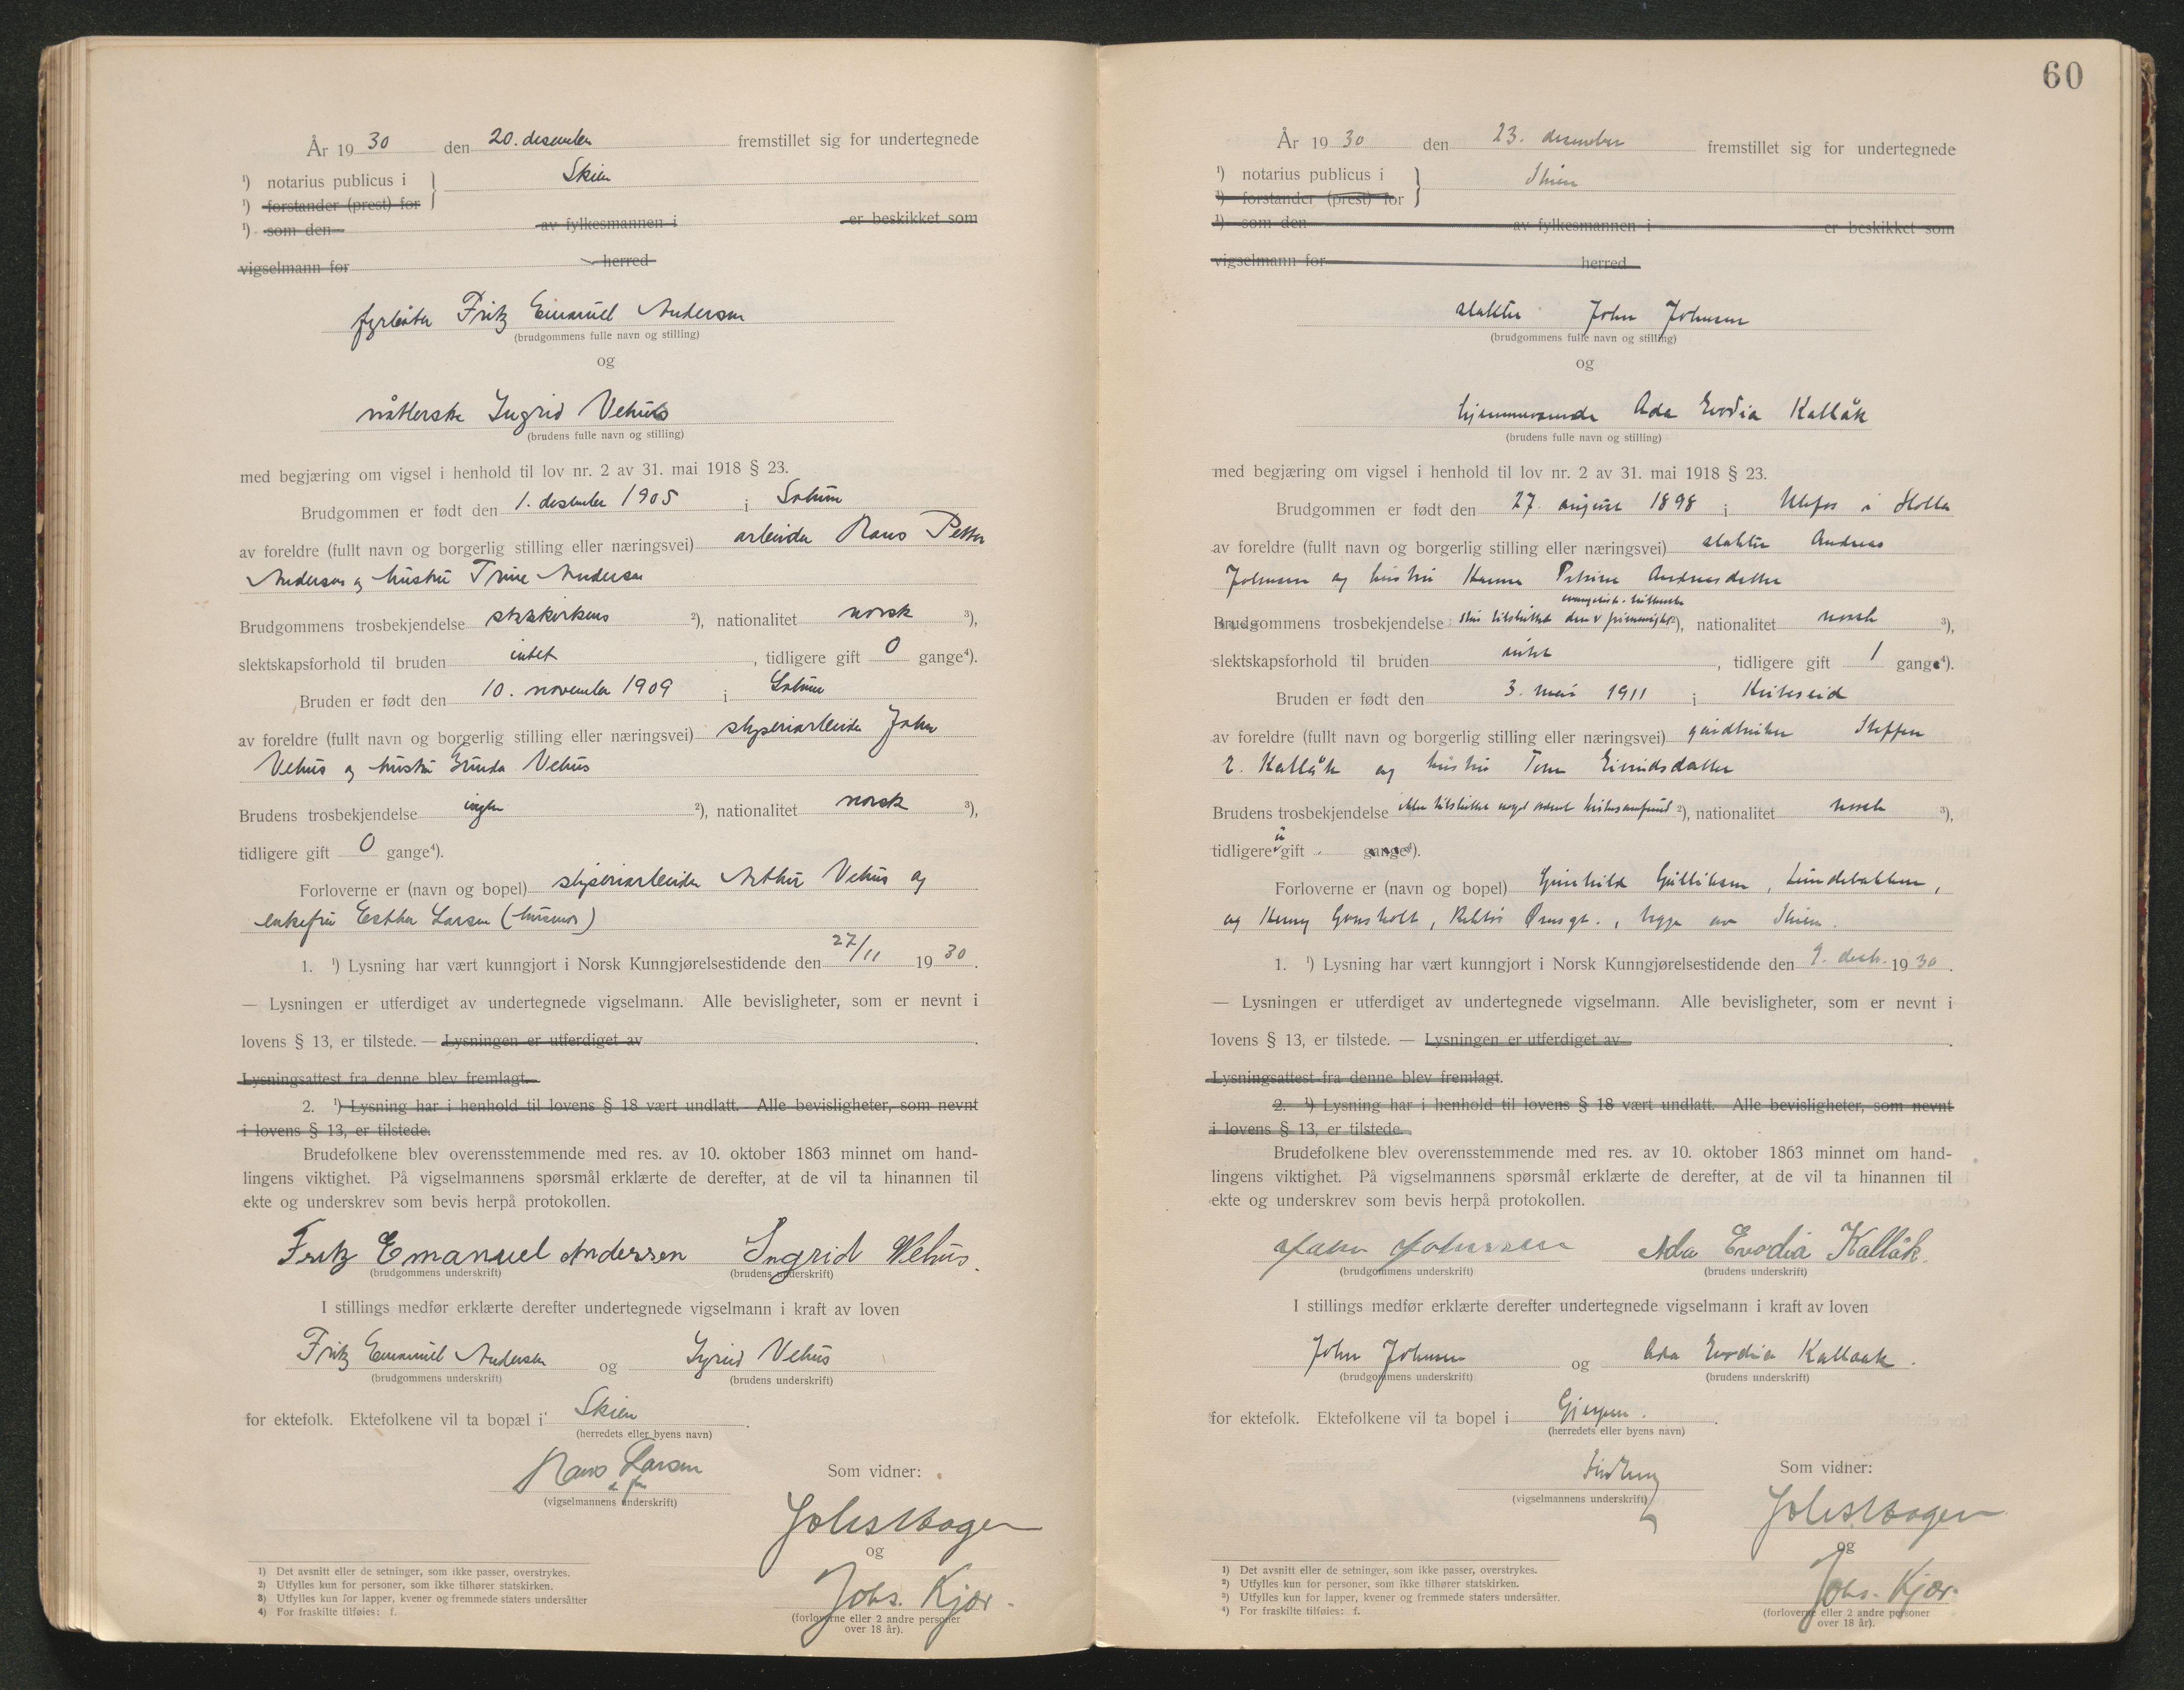 År 1930 den 20. desember fremstillet sig for undertegnede
¹) notarius publicus i } Skien
¹) forstander (prest) for
¹) som den av fylkesmannen i er beskikket som
vigselmann for herred
fyrbøter Fritz Emanuel Andersen
(brudgommens fulle navn og stilling)
og
nåtlerske Ingrid Vehus
(brudens fulle navn og stilling)
med begjæring om vigsel i henhold til lov nr. 2 av 31. mai 1918 § 23.
Brudgommen er født den 1. desember 1905 i Solum
av foreldre (fullt navn og borgerlig stilling eller næringsvei) arbeider Hans Petter
Andersen og hustru Trine Andersen
Brudgommens trosbekjendelse statskirkens ²), nationalitet norsk ³),
slektskapsforhold til bruden intet , tidligere gift 0 gange⁴).
Bruden er født den 10. november 1909 i Solum
av foreldre (fullt navn og borgerlig stilling eller næringsvei) sliperiarbeider John
Vehus og hustru Gunda Vehus
Brudens trosbekjendelse ingen ²), nationalitet norsk ³),
tidligere gift 0 gange⁴).
Forloverne er (navn og bopel) sliperiarbeider Arthur Vehus og
enkefru Esther Larsen (husmor)
1. ¹) Lysning har vært kunngjort i Norsk Kunngjørelsestidende den 27/11 1930.
— Lysningen er utferdiget av undertegnede vigselmann. Alle bevisligheter, som er nevnt i
lovens § 13, er tilstede. — Lysningen er utferdiget av .
Lysningsattest fra denne blev fremlagt.
2. ¹) Lysning har i henhold til lovens § 18 vært undlatt. Alle bevisligheter, som nevnt
i lovens § 13, er tilstede.
Brudefolkene blev overensstemmende med res. av 10. oktober 1863 minnet om hand-
lingens viktighet. På vigselmannens spørsmål erklærte de derefter, at de vil ta hinannen til
ekte og underskrev som bevis herpå protokollen.
Fritz Emanuel Anderssen Ingrid Vehus.
(brudgommens underskrift) (brudens underskrift)
I stillings medfør erklærte derefter undertegnede vigselmann i kraft av loven
Fritz Emanuel Andersen og Ingrid Vehus
(brudgommens underskrift) (brudens underskrift)
for ektefolk. Ektefolkene vil ta bopæl i Skien .
(herredets eller byens navn)
Hans Larsen
(vigselmannens underskrift)
Som vidner:
og
Johs. Kjær.
(forloverne eller 2 andre personer
over 18 år).
1) Det avsnitt eller de setninger, som ikke passer, overstrykes.
2) Utfylles kun for personer, som ikke tilhører statskirken.
3) Utfylles kun for lapper, kvener og fremmede staters undersåtter
4) For fraskilte tilføies: f.
60
År 1930 den 23. desember fremstillet sig for undertegnede
¹) notarius publicus i } Skien
¹) forstander (prest) for
¹) som den av fylkesmannen i er beskikket som
vigselmann for herred
slakter John Johnsen
(brudgommens fulle navn og stilling)
og
hjemmeværende Ada Evodia Kallåk
(brudens fulle navn og stilling)
med begjæring om vigsel i henhold til lov nr. 2 av 31. mai 1918 § 23.
Brudgommen er født den 27. august 1898 i Ulefos i Holla
av foreldre (fullt navn og borgerlig stilling eller næringsvei) slakter Andreas
Johnsen og hustru Hanna Petrine Andreasdatter
evangelisk-lutherske
Brudgommens trosbekjendelse tilsluttet den frimenighet ²), nationalitet norsk ³),
slektskapsforhold til bruden intet , tidligere gift 1 gang⁴).
Bruden er født den 3. mai 1911 i Kviteseid
av foreldre (fullt navn og borgerlig stilling eller næringsvei) gårdbruker Steffen
E. Kallåk og hustru Tone Eivindsdatter
Brudens trosbekjendelse ikke tilsluttet noget ordnet kirkesamfund ²), nationalitet norsk ³),
tidligere ei gift gange⁴).
Forloverne er (navn og bopel) Gunhild Gulliksen, Lundebakken,
og Henny Gromholt, Rektor Ørnsgt., begge av Skien.
1. ¹) Lysning har vært kunngjort i Norsk Kunngjørelsestidende den 9. desbr. 1930.
— Lysningen er utferdiget av undertegnede vigselmann. Alle bevisligheter, som er nevnt i
lovens § 13, er tilstede. — Lysningen er utferdiget av .
Lysningsattest fra denne blev fremlagt.
2. ¹) Lysning har i henhold til lovens § 18 vært undlatt. Alle bevisligheter, som nevnt
i lovens § 13, er tilstede.
Brudefolkene blev overensstemmende med res. av 10. oktober 1863 minnet om hand-
lingens viktighet. På vigselmannens spørsmål erklærte de derefter, at de vil ta hinannen til
ekte og underskrev som bevis herpå protokollen.
John Johnssen Ada Evodia Kallåk.
(brudgommens underskrift) (brudens underskrift)
I stillings medfør erklærte derefter undertegnede vigselmann i kraft av loven
John Johnsen og Ada Evodia Kallaak.
(brudgommens underskrift) (brudens underskrift)
for ektefolk. Ektefolkene vil ta bopel i Gjerpen.
(herredets eller byens navn)
(vigselmannens underskrift)
Som vidner:
og
Johs. Kjær.
(forloverne eller 2 andre personer
over 18 år).
1) Det avsnitt eller de setninger, som ikke passer, overstrykes.
2) Utfylles kun for personer, som ikke tilhører statskirken.
3) Utfylles kun for lapper, kvener og fremmede staters undersåtter.
4) For fraskilte tilføies: f.